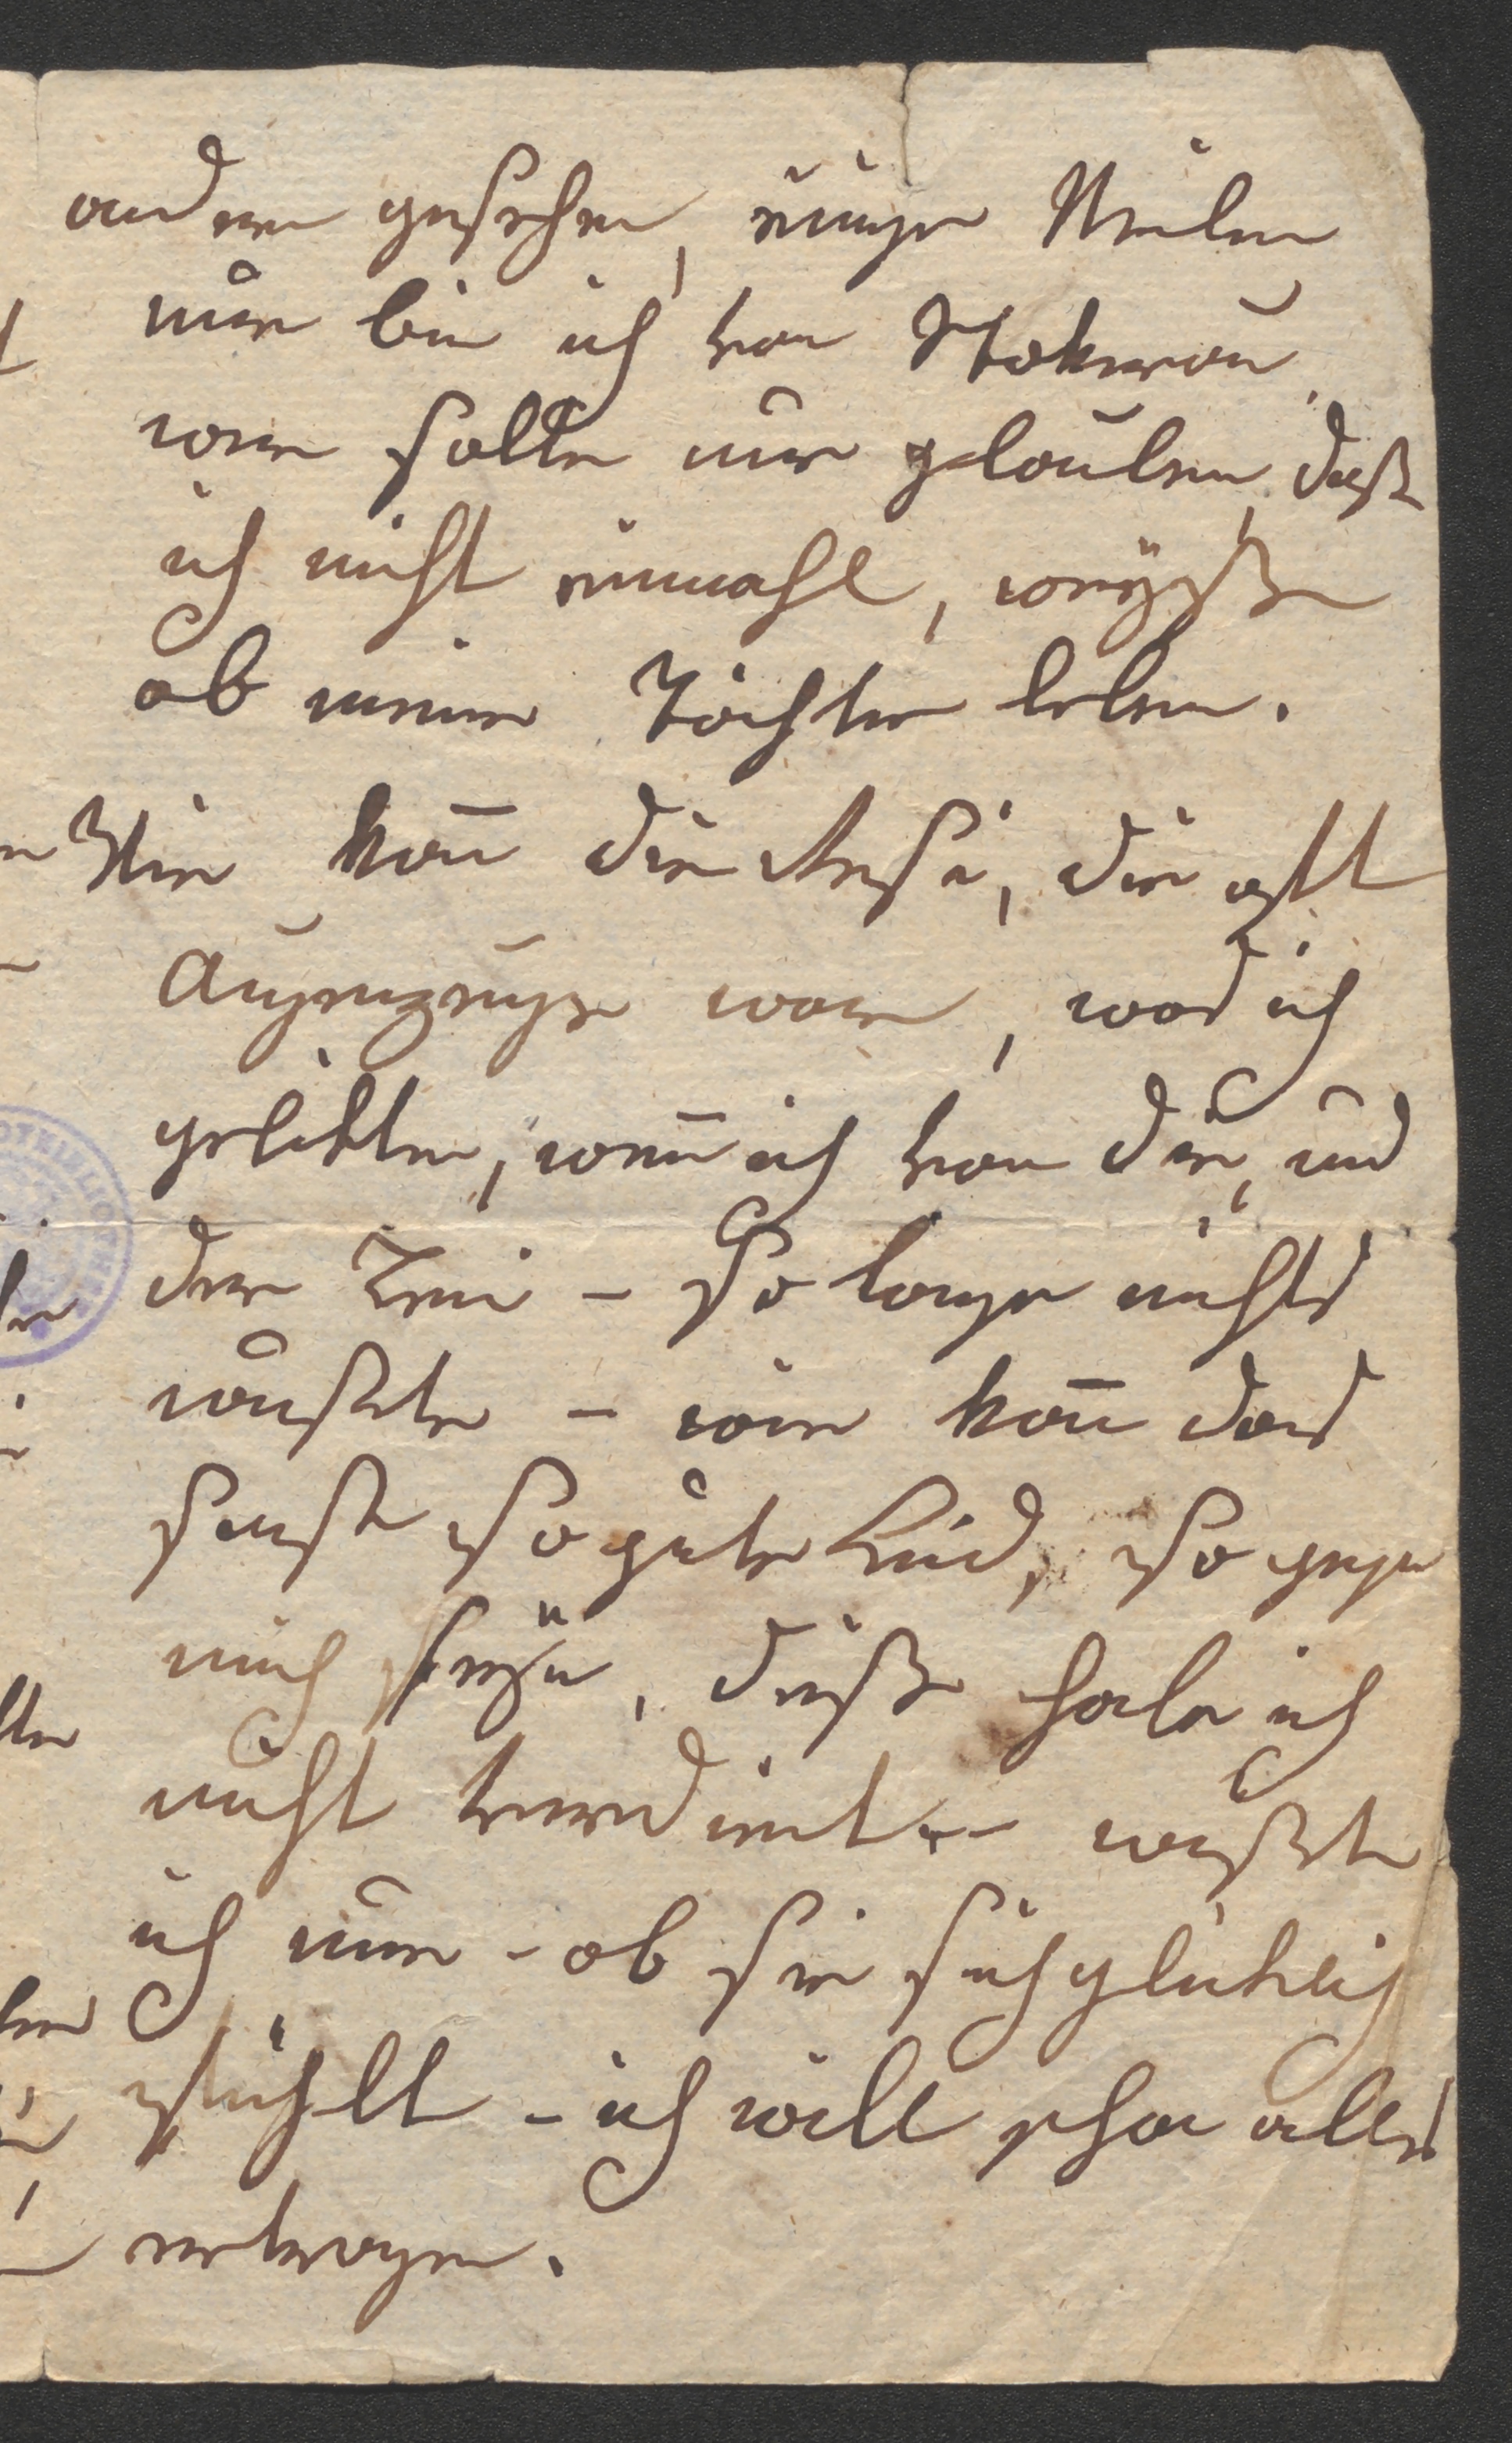 andern gesehen, einige Meilen
nur bin ich von Stokerau
wer sollte nur glauben, daß
ich nicht einmahl, weyße
ob meine Töchter leben.
Wie kan̄ die Resi, die oft
Augenzeuge war, was ich
gelitten, wen̄ ich von dir, und
der Teni - So lange nichts
wuste - wie kan̄ das
sonst so gute Kind, so gegen
mich seyn, dieße habe ich
nicht verdient - wüste
ich nur - ob sie sich gluklich
fühlt - ich will schon alles
ertragen.